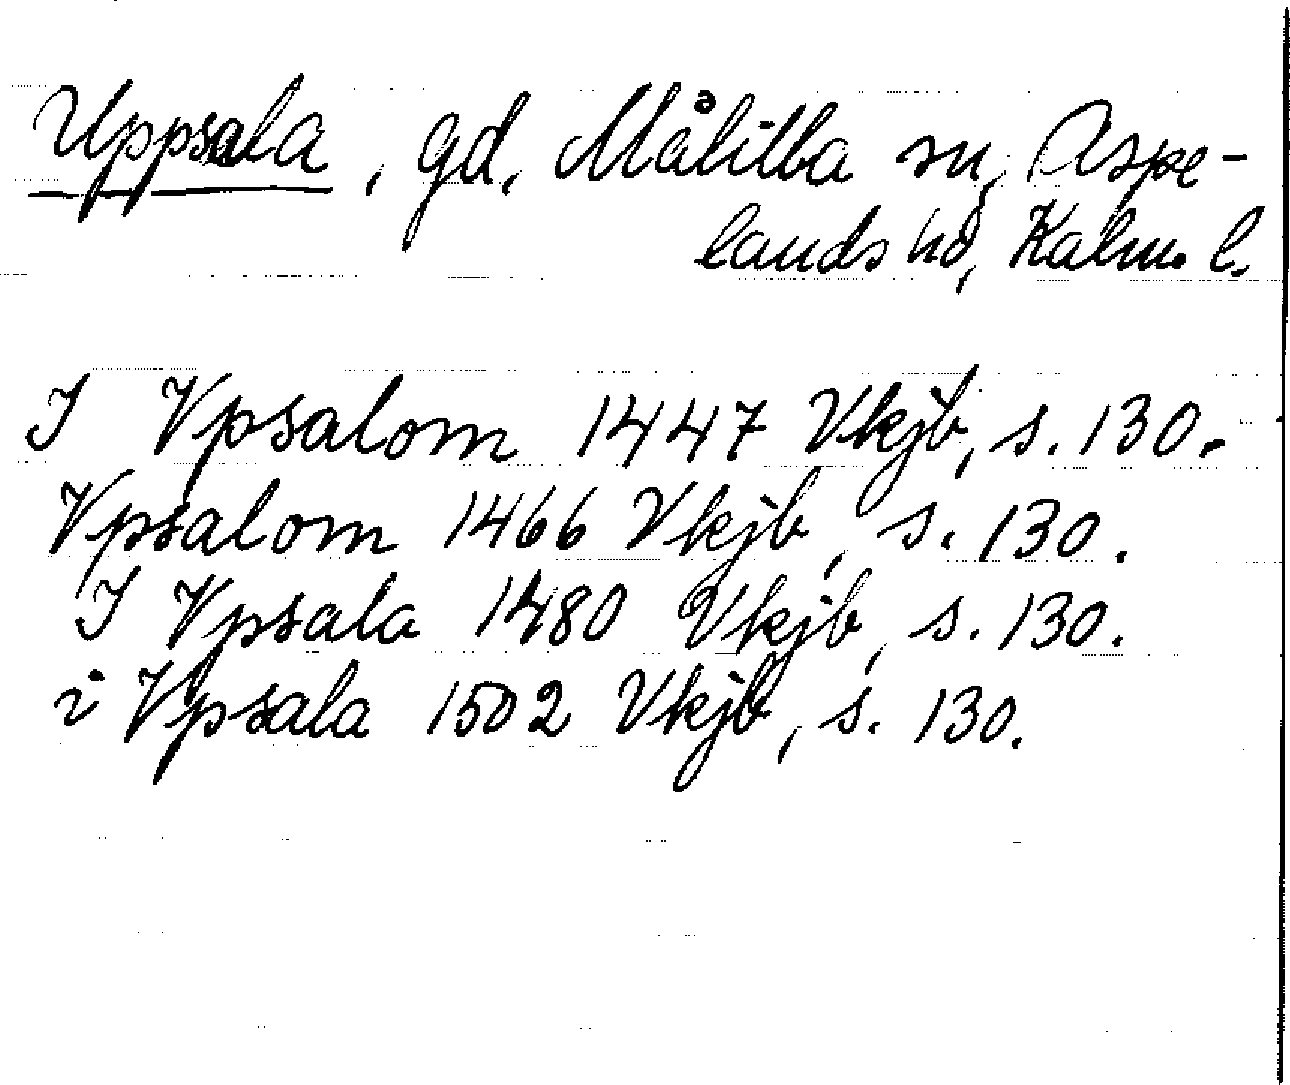 Uppsala, gd, Målilla sn, Aspe-
lands hd, Kalm. l.
I Vpsalom 1447 Vkjb, s. 130.
Vpsalom 1466 Vkjb, s. 130.
I Vpsala 1480 Vkjb, s. 130.
i Vpsala 1502 Vkjb, s. 130.